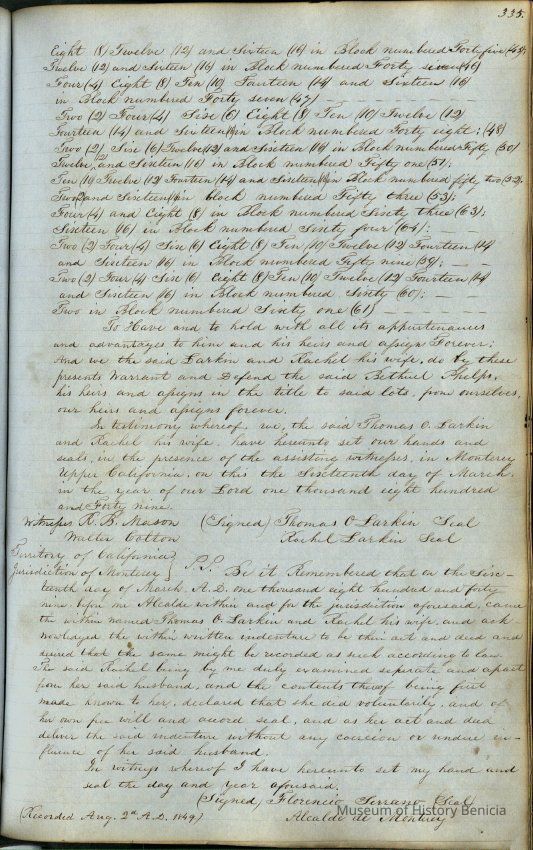 335.
Eight (8) Twelve (12) and Sixteen (16) in Block numbered Forty five (45);
Twelve (12) and Sixteen (16) in Block numbered Forty six (46)
Four (4) Eight (8) Ten (10) Fourteen (14) and Sixteen (16)
in Block numbered Forty seven (47)
Two (2) Four (4) Six (6) Eight (8) Ten (10) Twelve (12)
Fourteen (14) and Sixteen (16) in Block numbered Forty eight; (48)
Two (2) Six (6) Twelve (12) and Sixteen (16) in Block numbered Fifty (50)
Twelve (12) and Sixteen (16) in Block numbered Fifty one (51);
Ten (10) Twelve (12) Fourteen (14) and Sixteen (16) in Block numbered fifty two (52).
Two (2) and Sixteen (16) in block numbered Fifty three (53);
Four (4) and Eight (8) in Block numbered Sixty three (63);
Sixteen (16) in Block numbered Sixty four (64);
Two (2) Four (4) Six (6) Eight (8) Ten (10) Twelve (12) Fourteen (14)
and Sixteen (16) in Block numbered Fifty nine (59);
Two (2) Four (4) Six (6) Eight (8) Ten (10) Twelve (12) Fourteen (14)
and Sixteen (16) in Block numbered Sixty (60);
Two in Block numbered Sixty one (61)
To Have and to hold with all its appurtenances
and advantages to him and his heirs and assigns Forever;
And we the said Larkin and Rachel his wife, do by these
presents Warrant and Defend the said Bethuel Phelps,
his heirs and assigns in the title to said lots, from ourselves,
our heirs and assigns forever.
In testimony whereof, we, the said Thomas O. Larkin
and Rachel his wife, have hereunto set our hands and
seals, in the presence of the assisting witnesses, in Monterey
Upper California, on this the Sixteenth day of March,
in the year of our Lord one thousand eight hundred
and Forty nine.
Witnesses R. B. Mason (Signed) Thomas O Larkin Seal
Walter Colton Rachel Larkin Seal
Territory of California
Jurisdiction of Monterey } S.S. Be it Remembered that on the Six-
teenth day of March, A.D. one thousand eight hundred and forty
nine before me Alcalde within and for the jurisdiction aforesaid, came
the within named Thomas O. Larkin and Rachel his wife, and ack
nowledged the within written indenture to be their act and deed and
desired that the same might be recorded as such according to law.
The said Rachel being by me duly examined seperate and apart
from her said husband, and the contents thereof being first
made known to her, declared that she did voluntarily, and of
her own free will and accord seal, and as her act and deed
deliver the said indenture without any coercion or undue in-
fluence of her said husband.
In witness whereof I have hereunto set my hand and
seal the day and year aforesaid.
(Signed) Florencio Serrano Seal
(Recorded Aug. 2d A.D. 1849) Alcalde de Monterey
Museum of History Benicia